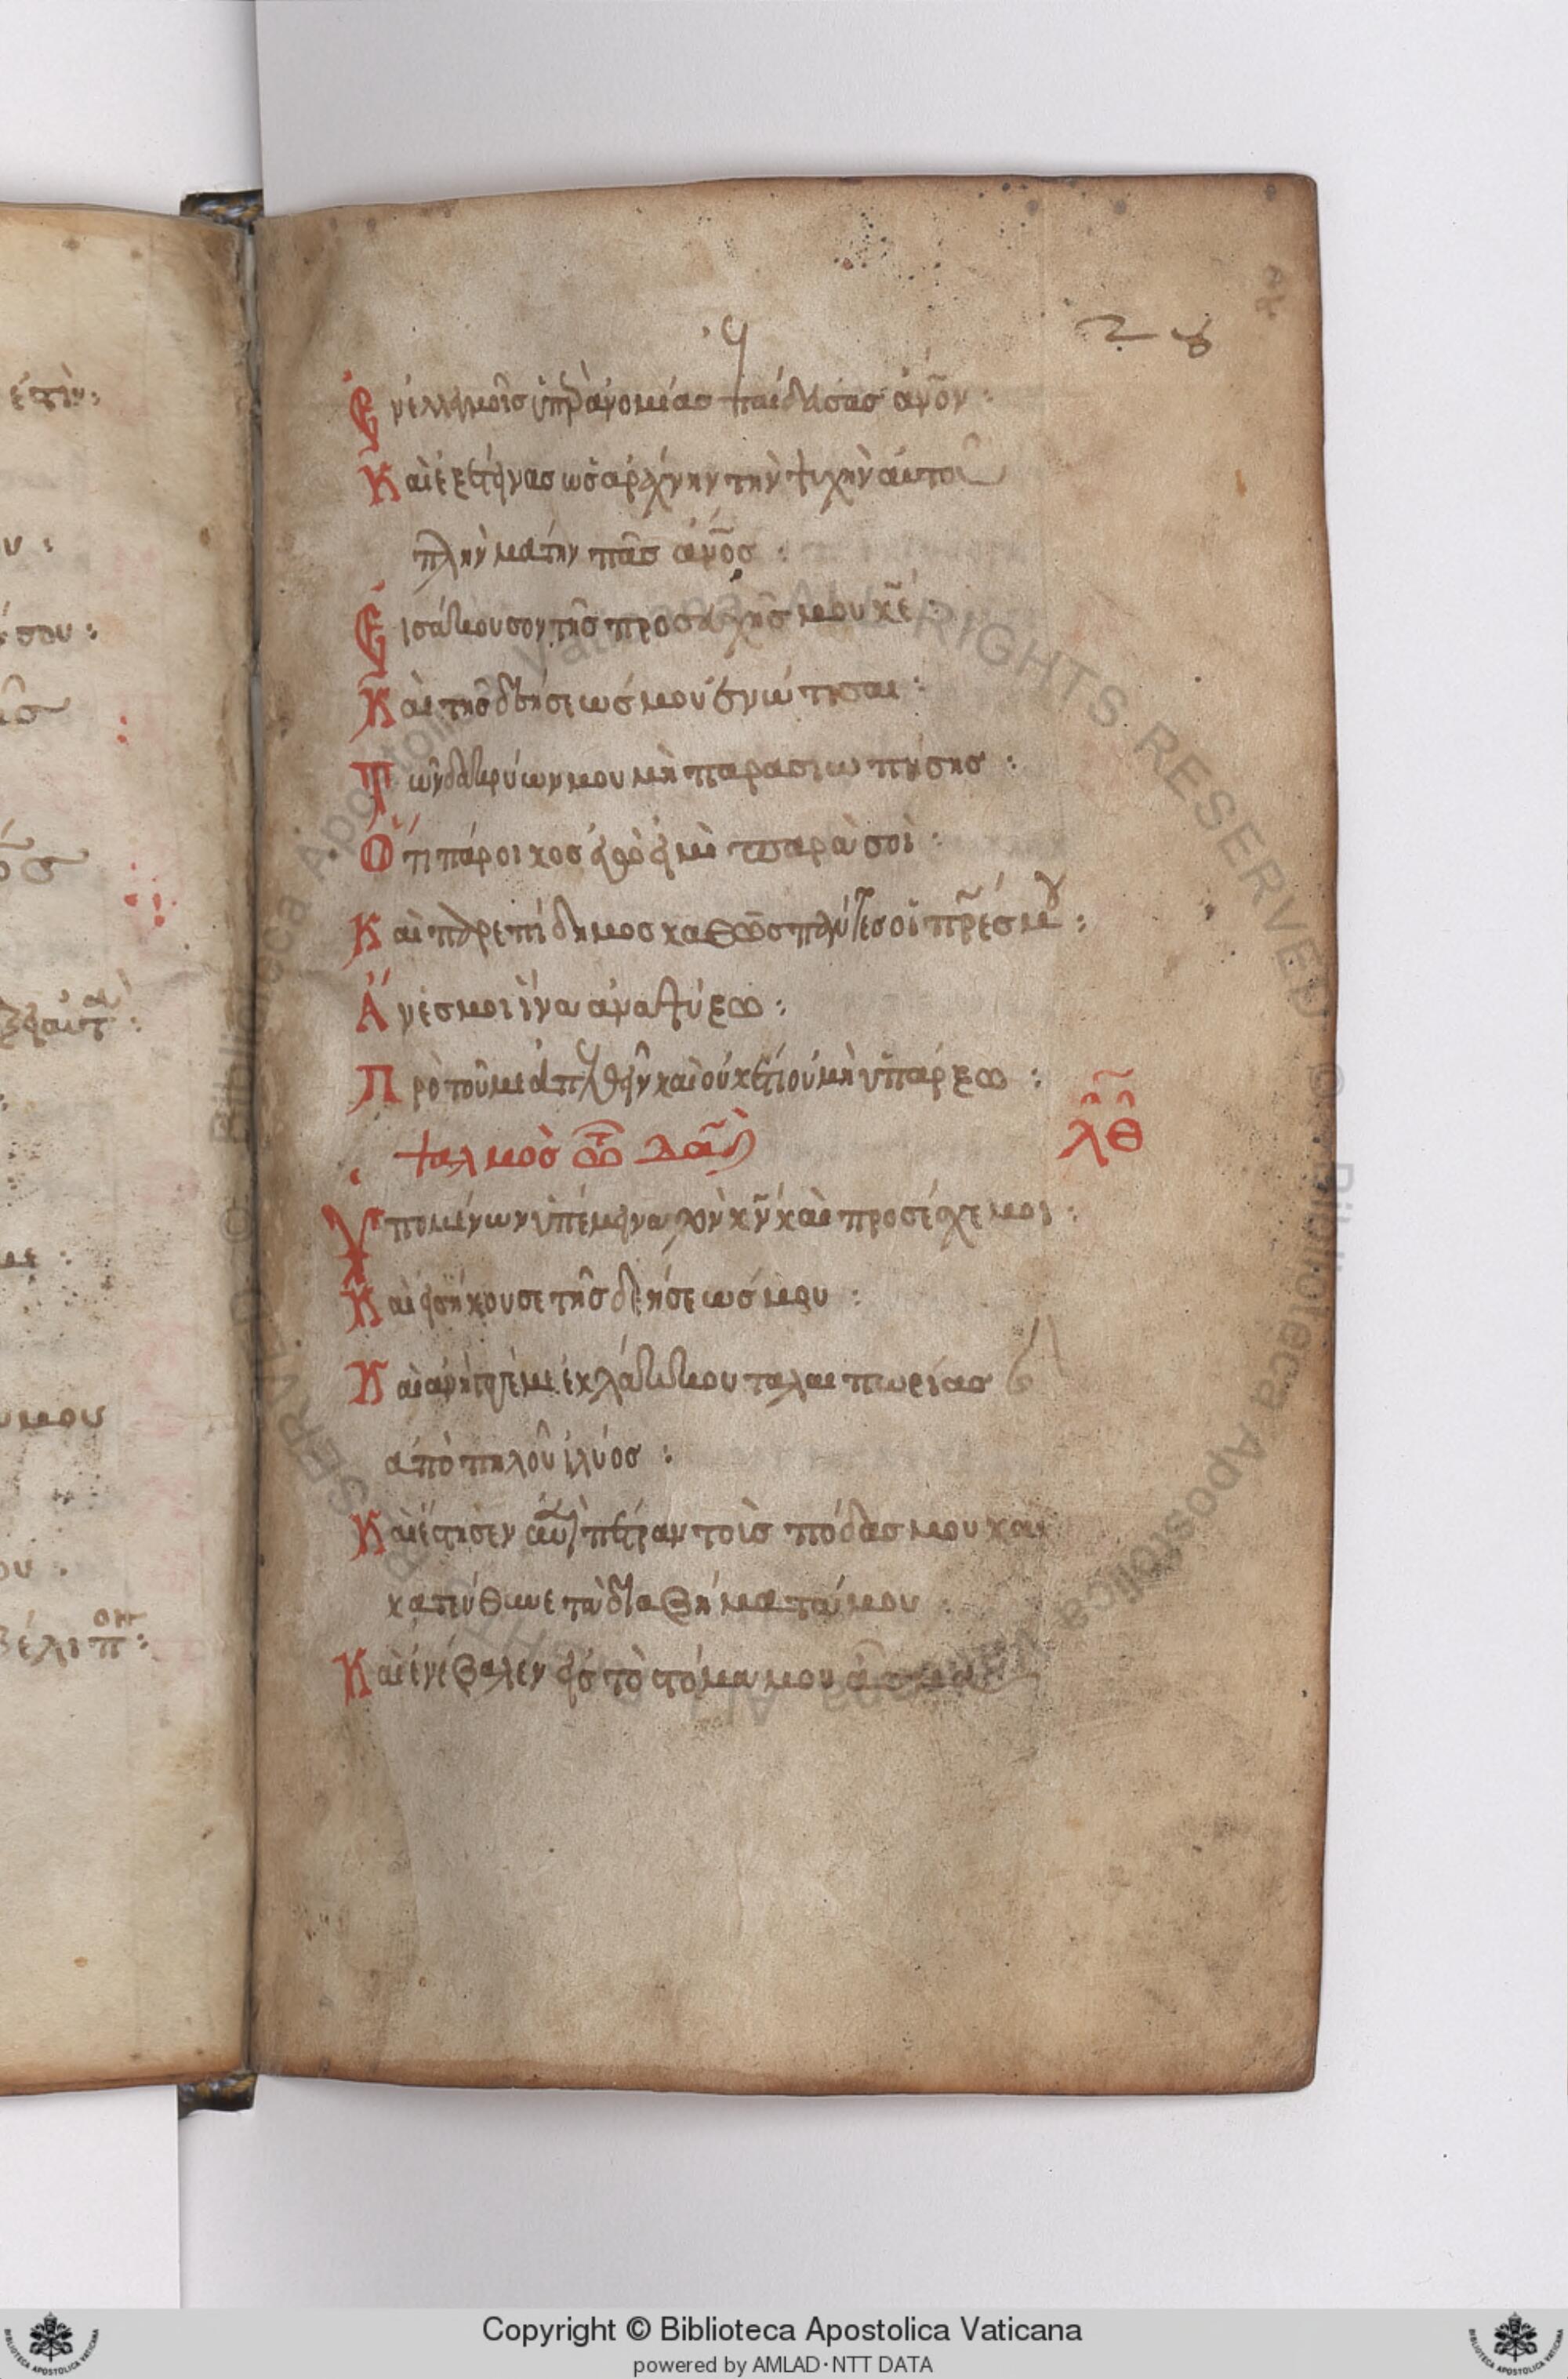 28
Ἐν ἐλεγμοῖς ὑπὲρ ἀνομίας ἐπαίδευσας ἀν̅ον :
Καὶ ἐξέτηξας ὡς ἀράχνην τὴν ψυχὴν αὐτοῦ
πλὴν μάτην πᾶς ἀν̅ος :
Εἰσάκουσον τῆς προσευχῆς μου κ̅ε :
Καὶ τῆς δεήσεώς μου ἐνώτισαι :
Τῶν δακρύων μου μὴ παρασιωπήσης :
Ὅτι πάροικος ἐγὼ εἰμὶ παρὰ σοὶ :
Καὶ παρεπίδημος καθὼς πάντες οἱ πρ̅ες μου :
Ἄνες μοι ἵνα ἀναψύξω :
Πρὸ τοῦ με ἀπελθεῖν καὶ οὐκέτι οὐ μὴ ὑπάρξω :
ψαλμὸς τῶ δα̅δ λθ
Ὑπομένων ὑπέμεινα τὸν κ̅ν καὶ προσέσχε μοι :
Καὶ εἰσήκουσε τῆς δεήσεώς μου :
Καὶ ἀνήγαγέ με ἐκ λάκκου ταλαιπωρίας
ἀπὸ πηλοῦ ἰλύος :
Καὶ ἔστησεν ἐπὶ πέτραν τοὺς πόδας μου καὶ
κατεύθυνε τὰ διαβήματά μου
Καὶ ἐνέβαλεν εἰς τὸ στόμα μου ἆσμα
Copyright © Biblioteca Apostolica Vaticana
powered by AMLAD·NTT DATA